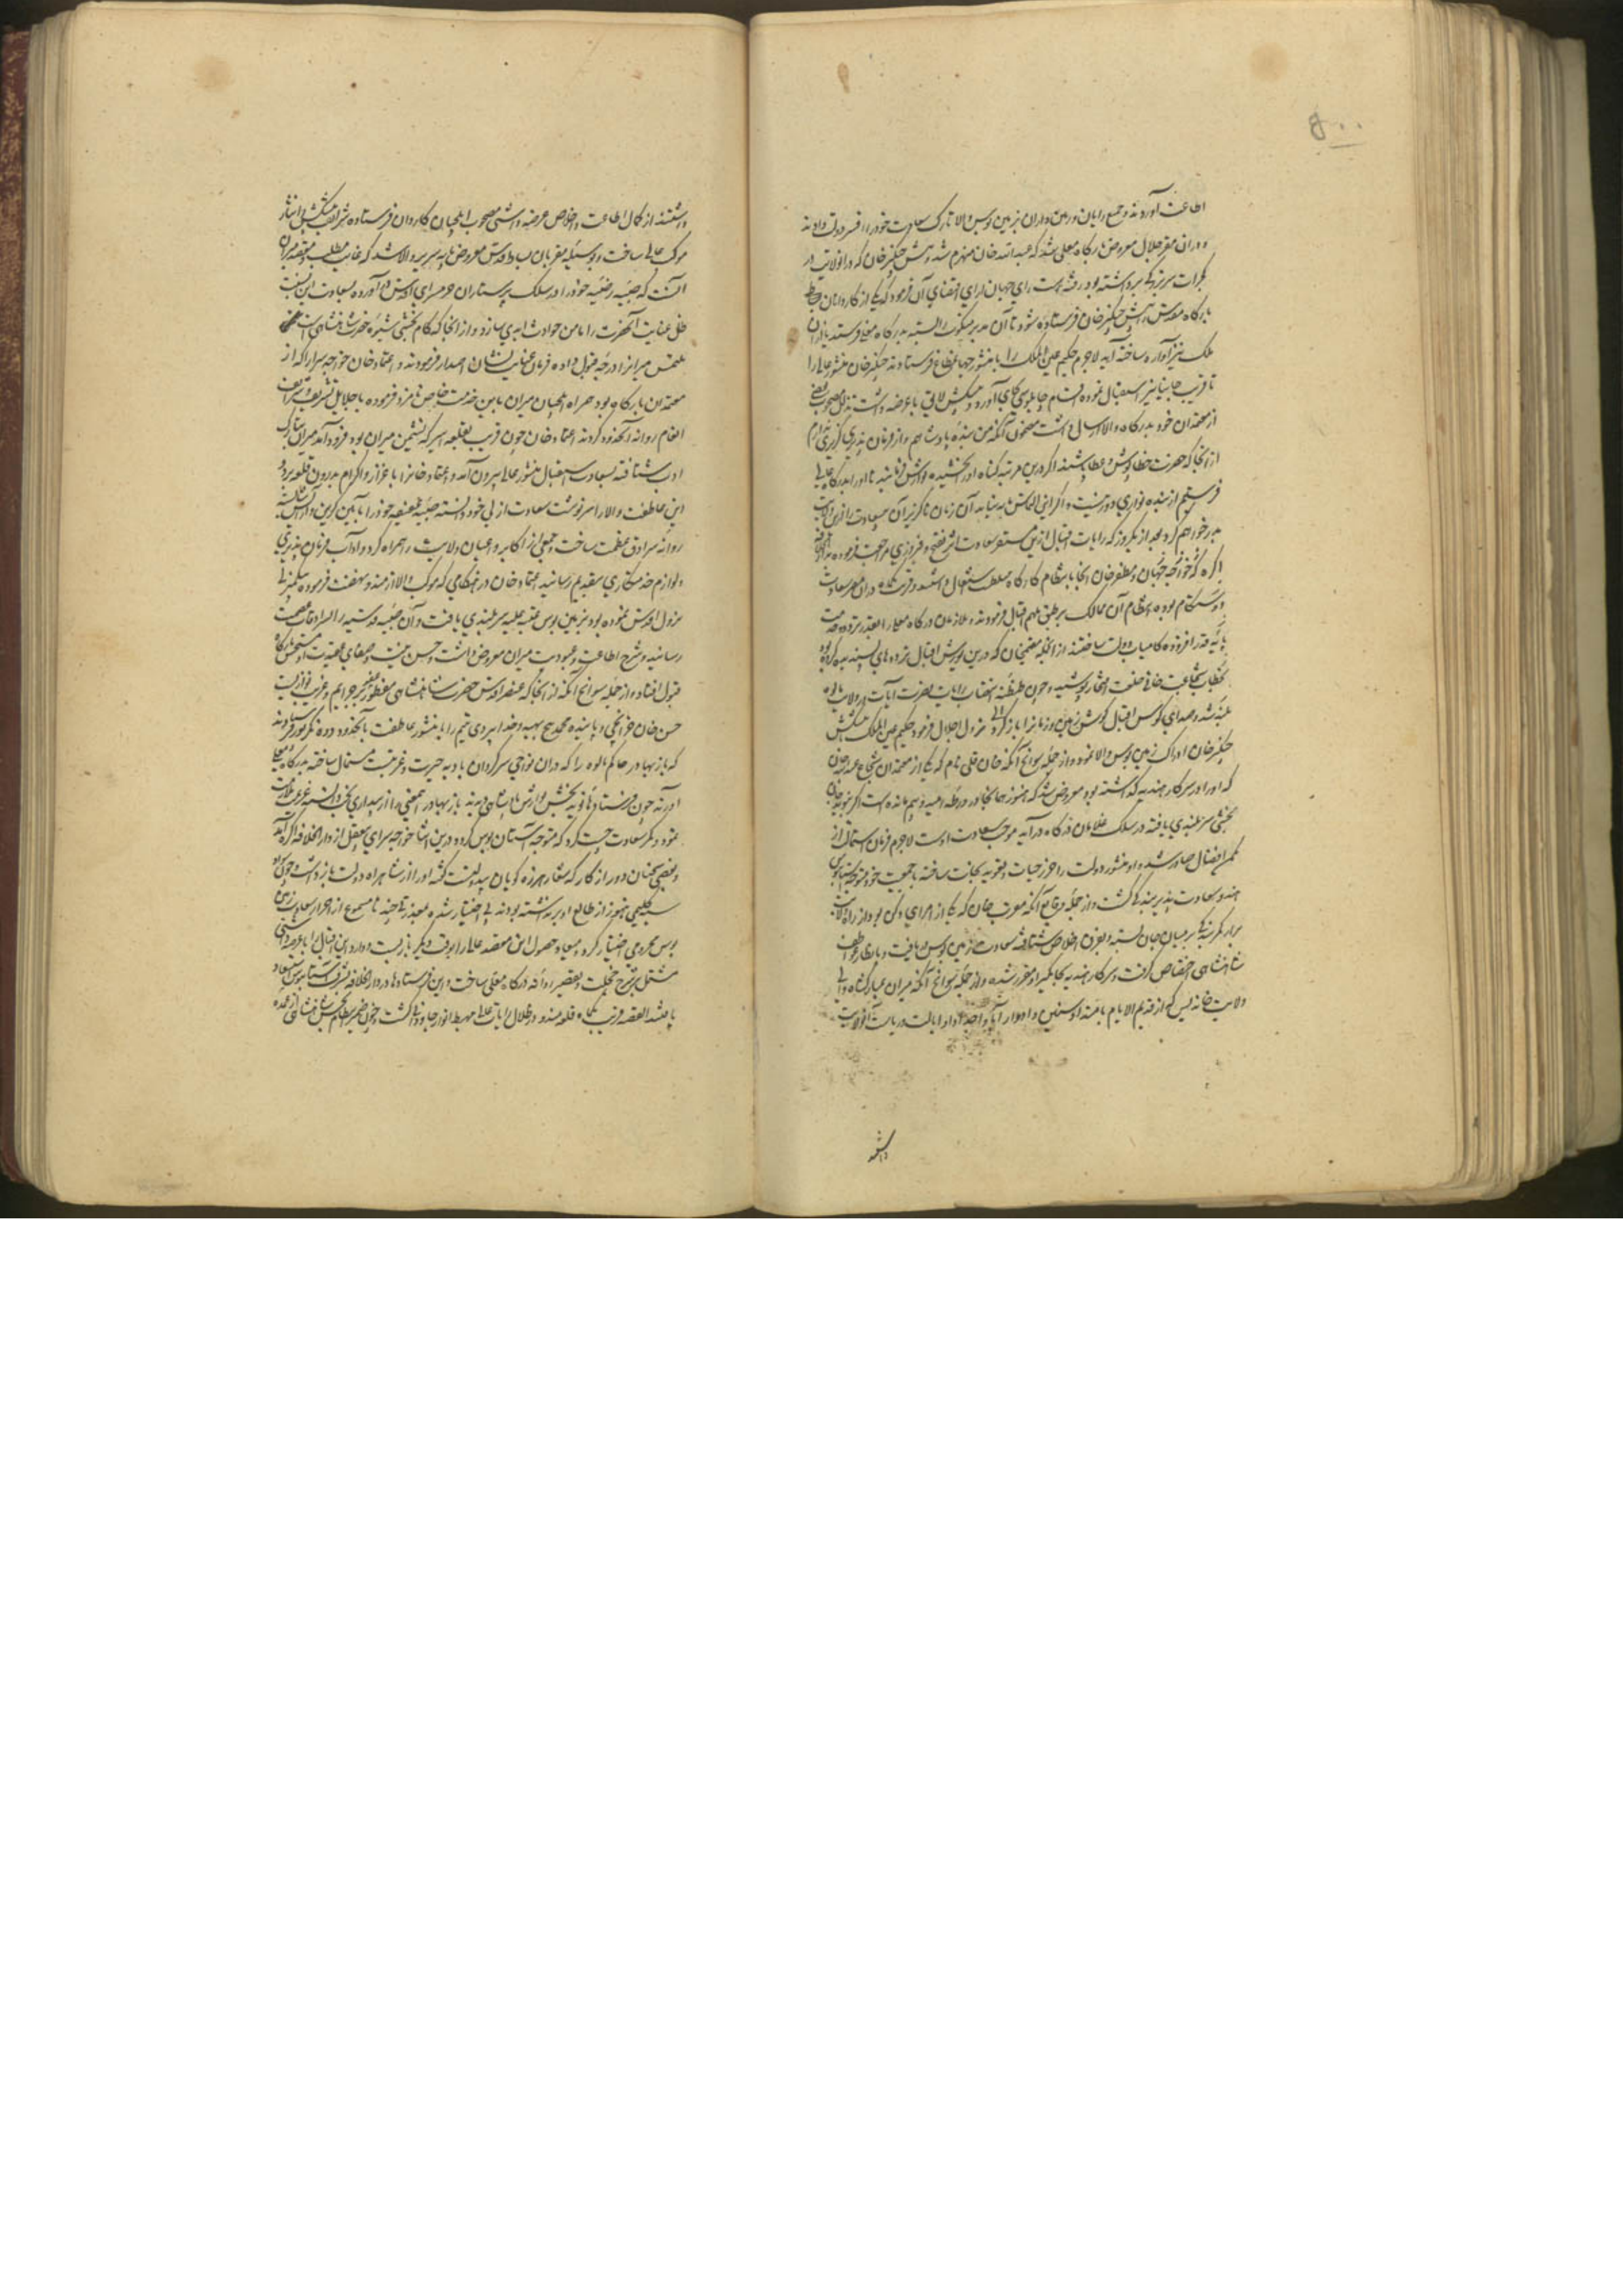 ۵۰۰
اطاعت آوردند و جمع رایان و زمین داران بزمین بوس والا تارک سعادت خود را افسر دولت دادند
و دران مقر جلال معروض بارگاه معلی شد که عبدالله خان منهزم شده پیش چنگیز خان که در انولایت در
گجرات سر بزرگی برداشته بود رفته است رای جهان ارای اقتضای آن فرمود که یکی از کاردانان
بارگاه مقدس پیش چنگیز خان فرستاده شود تا آن مدبر منکوب را بسته بدرگاه معلی فرستد یا ازان
ملک نیز آواره ساخته آید لاجرم حکیم عین الملک را با منشور جهانمطاع فرستادند چنگیز خان منشور عالی را
تا قریب جانپانیر استقبال نموده لوازم بجای آورد و پیشکش لایق با عرضه داشت مصحوب بعضی
از معتمدان خود بدرگاه والا ارسال داشت مضمون آنکه من بنده پادشاهم و از فرمان پذیری گزیری ندارم
از آنجا که حضرت خطاپوش و عطا پاشند اگر درین مرتبه گناه او را بخشیده نوازش فرمایند تا او را بدرگاه عالی
فرستیم از بنده نوازی دور نیست و اگر این التماس بدنیابد آن زمان ناگزیر آن سعادت را ازین ولایت
بدر خواهم کرد بعد از یکروز که رایات اقبال ازین مستقر سعادت اثر فتح و فیروزی مراجعت فرموده بدارالخلافه
اگره که خواجه جهان و مظفر خان آنجا بانتظام کارگاه سلطنت اشتغال داشتند و قرت شاه دران مقر سعادت
بوده انتظام آن ممالک بر طبق ملهم اقبال فرمودند و ملازمان درگاه معلی را بقدر تردد و خدمت
پایه قدر افزوده کامیاب دولت ساختند از انجمله مقیم خان که درین یورش اقبال تردد های پسندیده کرده بود
بخطاب شجاعت خانی خلعت افتخار پوشید و چون طنطنه نهضت رایات نصرت آیات در ولایت مالوه
بلند شد و صدای کوس اقبال گوش زمین و زمان را باز کرد نزول اجلال فرمود حکیم عین الملک پیشکش
چنگیز خان ادراک زمین بوس والا نمود و از جمله سوانح آنکه خان قلی نام که یکی از معتمدان شجاع عبدالله خان
که او را در سرکار هندیه گذاشته بود معروض شد که هنوز حانجا در ورطه امید و بیم مانده است اگر نوید جان
بخشی سر بلندی یافته در سلک غلامان درگاه در آید موجب سعادت اوست لاجرم فرمان استمالت از
ممر افضال صادر شد و او منشور دولت را حرز حیات و تعویذ نجات ساخته با جمعیت خود متوجه شد
سعادت پذیر بندگی گشت و از جمله وقایع آنکه مقرب خان که یکی از امرای دکن بود از راه ولایت
برار کمر بندگی بر میان جان بسته و بفرق اخلاص شتافته سعادت زمین بوس دریافت و بانظار عواطف
شاهنشاهی اختصاص گرفت و سرکار هندیه بجاگیر او مقرر شده و از جمله سوانح آنکه میران مبارکشاه والی
ولایت خاندیس که از قدیم الایام بامتداد سنین و ادوار آبا و اجداد او را ایالت و ریاست آن ولایت
داشتند
داشتند از کمال اطاعت و اخلاص عرضه داشتی مصحوب ایلچیان کاردان فرستاده شرایف پیشکش را نثار
موکب عالی ساخت و بوسیله مقربان بساط قدس معروض پایه سریر والا شد که غایت مطلب و مقصد میران
آنست که صبیه رضیه خود را در سلک پرستاران حرمسرای اقدس در آورده بسعادت این نسبت
ظل عنایت آنحضرت را مامن حوادث ابدی سازد و از انجا که کام بخشی شیوه حضرت شاهنشاهی است
ملتمس میران را درجه قبول داده فرمان عنایت نشان اصدار فرمودند و اعتماد خان خواجه سرا را که از
معتمدان بارگاه بود همراه ایلچیان میران باین خدمت خاص نامزد فرموده با جلایل تشریف و شرایف
انعام روانه آنحدود کردند اعتماد خان چون قریب بقلعه اسیر که نشیمن میران بود فرود آمد میران بتارک
ادب شتافته بسعادت استقبال منشور عالی بیرون آمد و اعتماد خان را با عزاز و اکرام بدرون قلعه برد و
این عاطفت والا را سرنوشت سعادت ازلی خود دانسته صبیه عفیفه خود را بآیین گزین و آرایش شایسته
روانه سرادق عظمت ساخت و جمعی از اکابر و اعیان ولایت را همراه کرد و آداب فرمان پذیری
و لوازم خدمتکاری بتقدیم رسانید اعتماد خان در هنگامی که موکب والا از مندو نهضت فرموده بمنزل
نزول اقدس نموده بود بزمین بوس عتبه علیه سر بلندی یافت و آن صبیه قدسیه را بسرادقات عصمت
رسانید و شرح اطاعت و عبودیت میران معروض داشت و حسن نیت و صفای عقیدت او مستحسن بارگاه
قبول افتاد و از جمله سوانح آنکه از انجا که عنصر اقدس حضرت شاهنشاهی مفطور بعفو جرایم و غریب نوازیست
حسن خان خزانچی و پاینده محمد پنج بهیه و خدا بیردی یتیم را با منشور عاطفت بآنحدود دونگرپور فرستادند
که بازبهادر حاکم مالوه را که دران نواحی سرگردان بادیه حیرت و غربت است مستمال ساخته بدرگاه معلی
آورند چون فرستاد ها نوید بخشش و نوازش شاهنشاهی دادند بازبهادر اینمعنی را از بیداری بخت دانسته عزیمت ملازمت
نمود و کمر سعادت چست کرد که متوجه آستان بوس گردد درین اثنا خواجه سرای بیعقل از دار الخلافه اگره آمد
و بعضی سخنان دور از کار که شعار هرزه گویان بیدولت گشته او را از شاهراه دولت بازداشت و چون
سیه گلیمی هنوز از طالع او بر نداشته بودند بی اختیار شده بعذر های چند نامسموع از احراز سعادت زمین
بوس محرومی اختیار کرد و میعاد حصول این مقصد عالی را بوقت دیگر باز بست و دارد این اقبال را با عرضه داشتی
مشتمل بر شرح خجلت و تقصیر روانه درگاه معلی ساخت و این فرستاد ها در دار الخلافه بشرف آستانبوس استسعاد
یافتند القصه قریب یکماه قلعه مندو در ظلال رایات عالی مهبط انوار جاودانی گشت و چون ضمیر شاهنشاهی از عمده